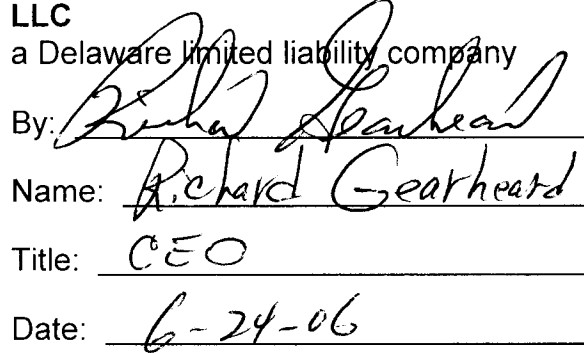 LLC
a Delaware limited liability company
By: Richard Gearheard
Name: Richard Gearheard
Title: CEO
Date: 6-24-06